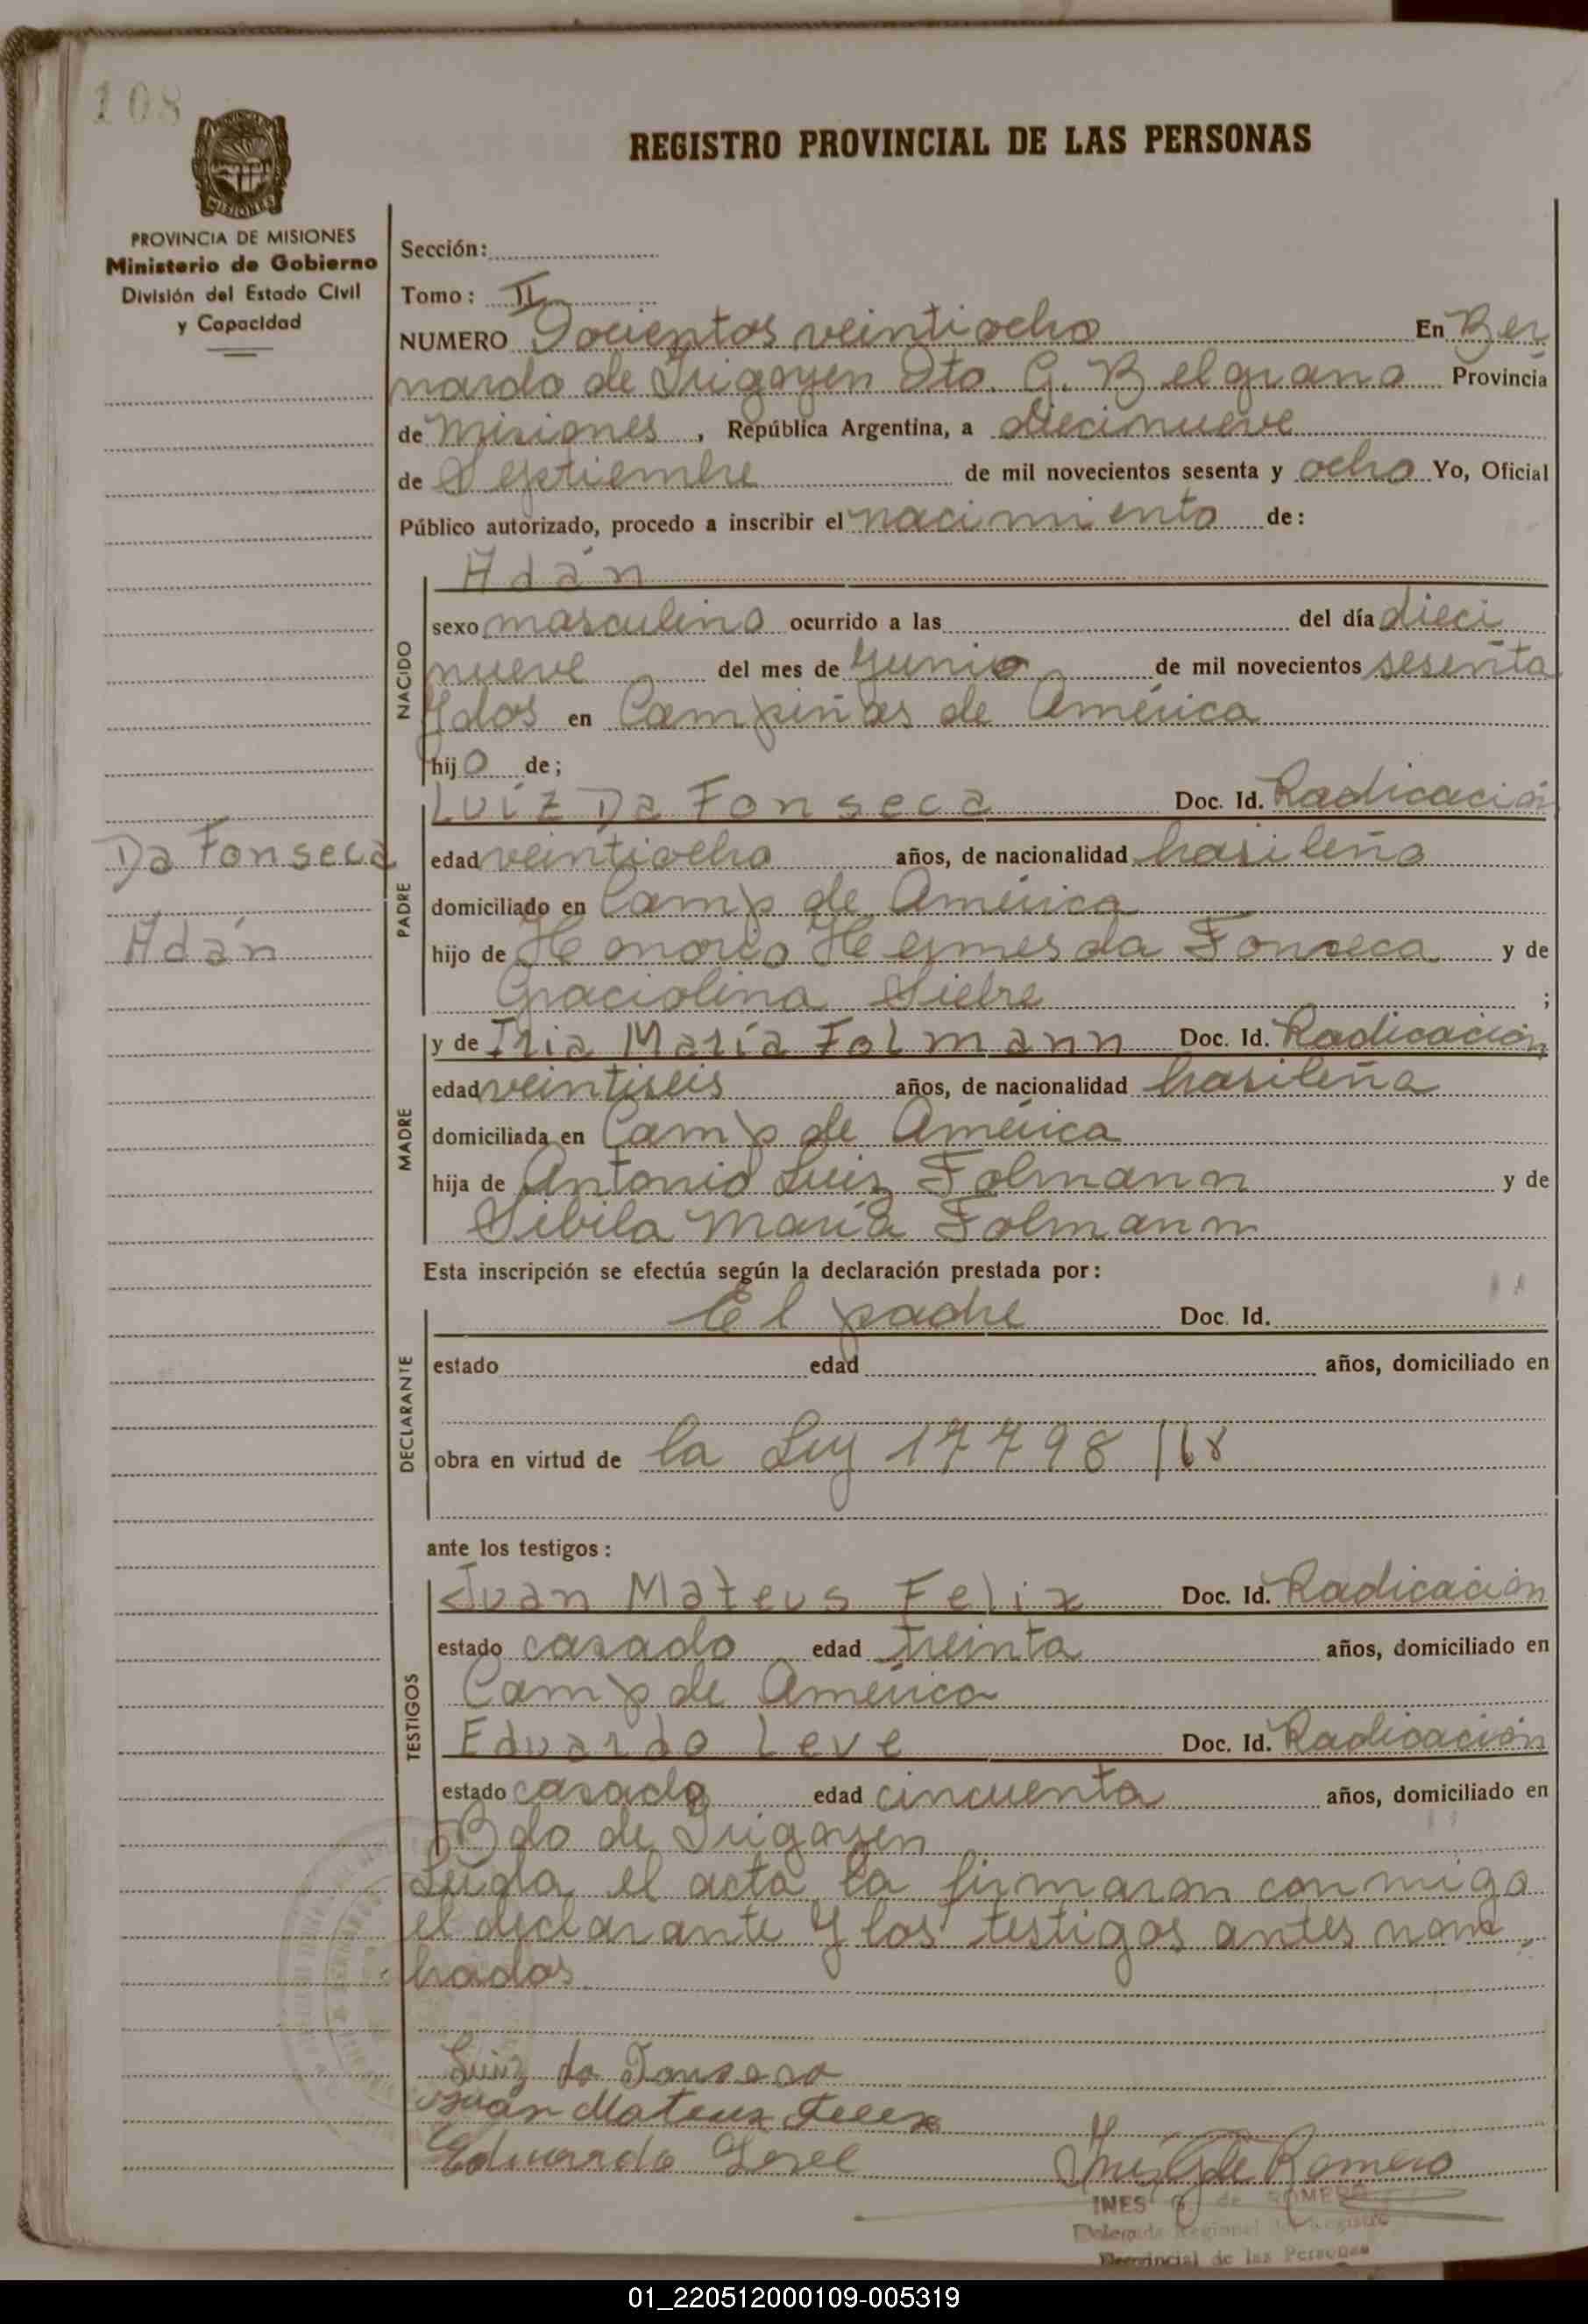 108
REGISTRO PROVINCIAL DE LAS PERSONAS
PROVINCIA DE MISIONES
Ministerio de Gobierno
División del Estado Civil
y Capacidad
Sección:
Tomo: II
NUMERO Docientos veintiocho En Ber
nardo de Irigoyen Dto. G. Belgrano Provincia
de Misiones, República Argentina, a diecinueve
de Septiembre de mil novecientos sesenta y ocho Yo, Oficial
Público autorizado, procedo a inscribir el nacimiento de:
Adán
NACIDO
sexo masculino ocurrido a las del día dieci
nueve del mes de Junio de mil novecientos sesenta
y dos en Campiñas de América
hijo de;
Luiz Da Fonseca Doc. Id. Radicación
Da Fonseca
Adán
PADRE
edad veintiocho años, de nacionalidad brasileño
domiciliado en Camp de América
hijo de Honorio Hermes da Fonseca y de
Graciolina ;
MADRE
y de Iria María Folmann Doc. Id. Radicación
edad veintiseis años, de nacionalidad brasileña
domiciliada en Camp de América
hija de Antonio Luiz Folmann y de
Sibila María Folmann
Esta inscripción se efectúa según la declaración prestada por:
DECLARANTE
El padre Doc. Id.
estado edad años, domiciliado en
obra en virtud de la Ley 17798/68
ante los testigos:
TESTIGOS
Juan Mateus Felix Doc. Id. Radicación
estado casado edad treinta años, domiciliado en
Camp de América
Eduardo Leve Doc. Id. Radicación
estado casado edad cincuenta años, domiciliado en
Bdo de Irigoyen
Leída el acta la firmaron conmigo
el declarante y los testigos antes nom
brados.
Luiz da Fonseca
Juan Mateus Felix
Eduardo
Inés G de Romero
INES G. de ROMERO
Delegada Regional del Registro
Provincial de las Personas
01_220512000109-005319